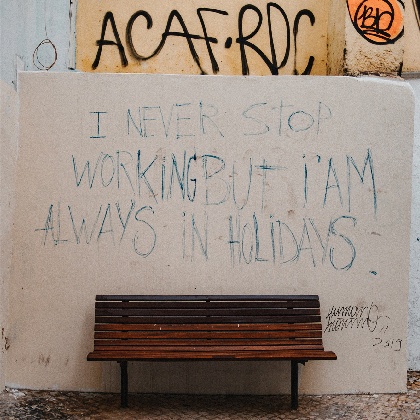 ACAF·RDC
I NEVER STOP
WORKING BUT I'AM
ALWAYS IN HOLIDAYS.